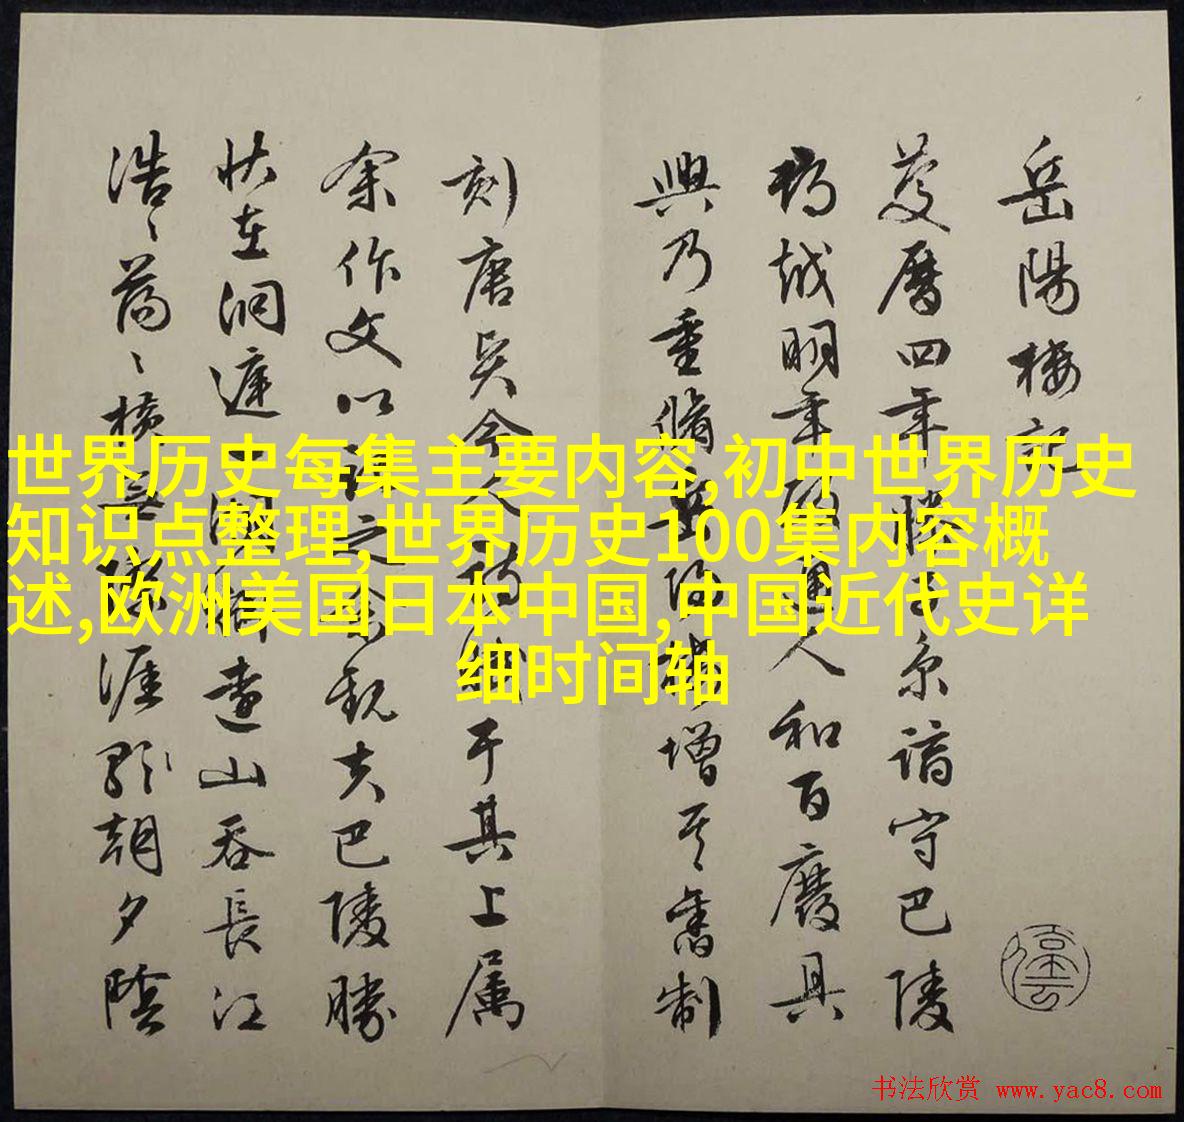 岳陽樓記
慶曆四年滕子京謫守巴陵
郡越明年政通人和百廢具
興乃重脩岳陽樓增其舊制
刻唐賢今人詩賦于其上属
余作文以記之予觀夫巴陵勝
狀在洞庭一湖銜遠山吞長江
浩〻蕩〻橫無際涯朝夕陰
世界历史每集主要内容,初中世界历史
知识点整理,世界历史100集内容概
述,欧洲美国日本中国,中国近代史详
细时间轴
书法欣赏 www.yac8.com